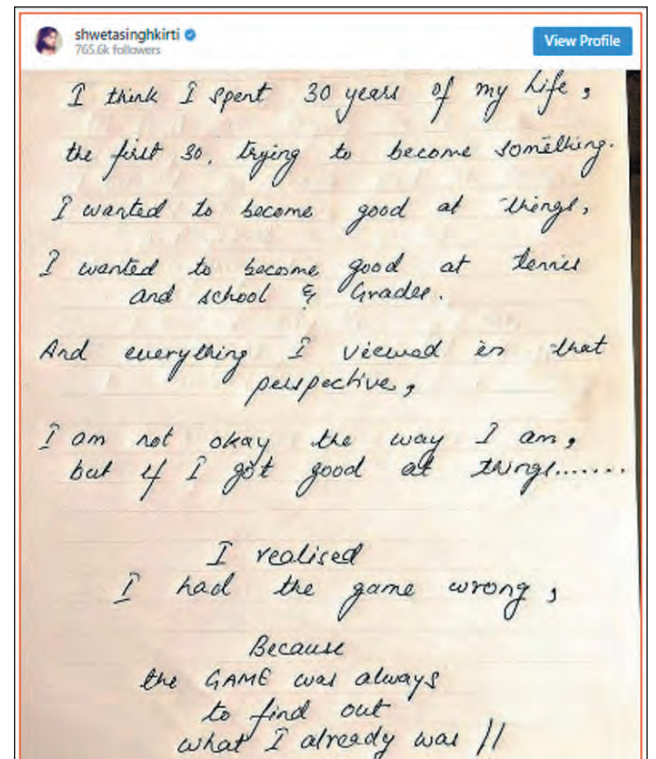 shwetasinghkirti
765.6k followers
View Profile
I think I spent 30 years of my life,
the first 30, trying to become something.
I wanted to become good at things,
I wanted to become good at tennis
and school & Grades.
And everything I viewed in that
perspective,
I am not okay the way I am,
but if I got good at things.......
I realised
I had the game wrong,
Because
the GAME was always
to find out
what I already was //